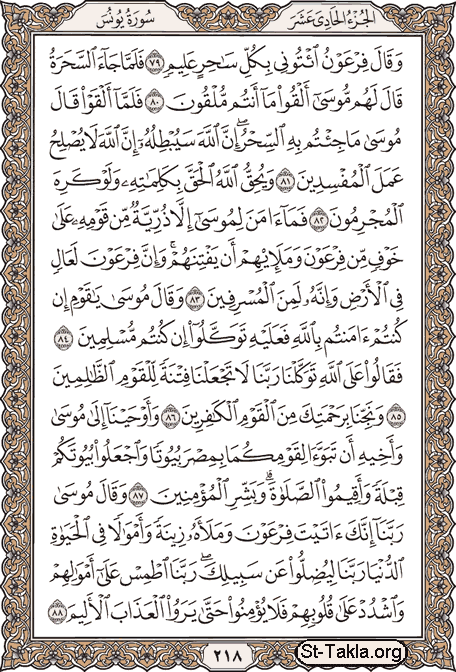 سُورَةُ يُونُسَ الجُزءُ الحَادِى عَشَرَ
وَقَالَ فِرْعَوْنُ ٱئْتُونِى بِكُلِّ سَٰحِرٍ عَلِيمٍ ٧٩ فَلَمَّا جَآءَ ٱلسَّحَرَةُ
قَالَ لَهُم مُّوسَىٰٓ أَلْقُوا۟ مَآ أَنتُم مُّلْقُونَ ٨٠ فَلَمَّآ أَلْقَوْا۟ قَالَ
مُوسَىٰ مَا جِئْتُم بِهِ ٱلسِّحْرُ ۖ إِنَّ ٱللَّهَ سَيُبْطِلُهُۥٓ ۖ إِنَّ ٱللَّهَ لَا يُصْلِحُ
عَمَلَ ٱلْمُفْسِدِينَ ٨١ وَيُحِقُّ ٱللَّهُ ٱلْحَقَّ بِكَلِمَٰتِهِۦ وَلَوْ كَرِهَ
ٱلْمُجْرِمُونَ ٨٢ فَمَآ ءَامَنَ لِمُوسَىٰٓ إِلَّا ذُرِّيَّةٌ مِّن قَوْمِهِۦ عَلَىٰ
خَوْفٍ مِّن فِرْعَوْنَ وَمَلَإِي۟هِمْ أَن يَفْتِنَهُمْ ۚ وَإِنَّ فِرْعَوْنَ لَعَالٍ
فِى ٱلْأَرْضِ وَإِنَّهُۥ لَمِنَ ٱلْمُسْرِفِينَ ٨٣ وَقَالَ مُوسَىٰ يَٰقَوْمِ إِن
كُنتُمْ ءَامَنتُم بِٱللَّهِ فَعَلَيْهِ تَوَكَّلُوٓا۟ إِن كُنتُم مُّسْلِمِينَ ٨٤
فَقَالُوا۟ عَلَى ٱللَّهِ تَوَكَّلْنَا رَبَّنَا لَا تَجْعَلْنَا فِتْنَةً لِّلْقَوْمِ ٱلظَّٰلِمِينَ
٨٥ وَنَجِّنَا بِرَحْمَتِكَ مِنَ ٱلْقَوْمِ ٱلْكَٰفِرِينَ ٨٦ وَأَوْحَيْنَآ إِلَىٰ مُوسَىٰ
وَأَخِيهِ أَن تَبَوَّءَا لِقَوْمِكُمَا بِمِصْرَ بُيُوتًا وَٱجْعَلُوا۟ بُيُوتَكُمْ
قِبْلَةً وَأَقِيمُوا۟ ٱلصَّلَوٰةَ ۗ وَبَشِّرِ ٱلْمُؤْمِنِينَ ٨٧ وَقَالَ مُوسَىٰ
رَبَّنَآ إِنَّكَ ءَاتَيْتَ فِرْعَوْنَ وَمَلَأَهُۥ زِينَةً وَأَمْوَٰلًا فِى ٱلْحَيَوٰةِ
ٱلدُّنْيَا رَبَّنَا لِيُضِلُّوا۟ عَن سَبِيلِكَ ۖ رَبَّنَا ٱطْمِسْ عَلَىٰٓ أَمْوَٰلِهِمْ
وَٱشْدُدْ عَلَىٰ قُلُوبِهِمْ فَلَا يُؤْمِنُوا۟ حَتَّىٰ يَرَوُا۟ ٱلْعَذَابَ ٱلْأَلِيمَ ٨٨
٢١٨
St-Takla.org